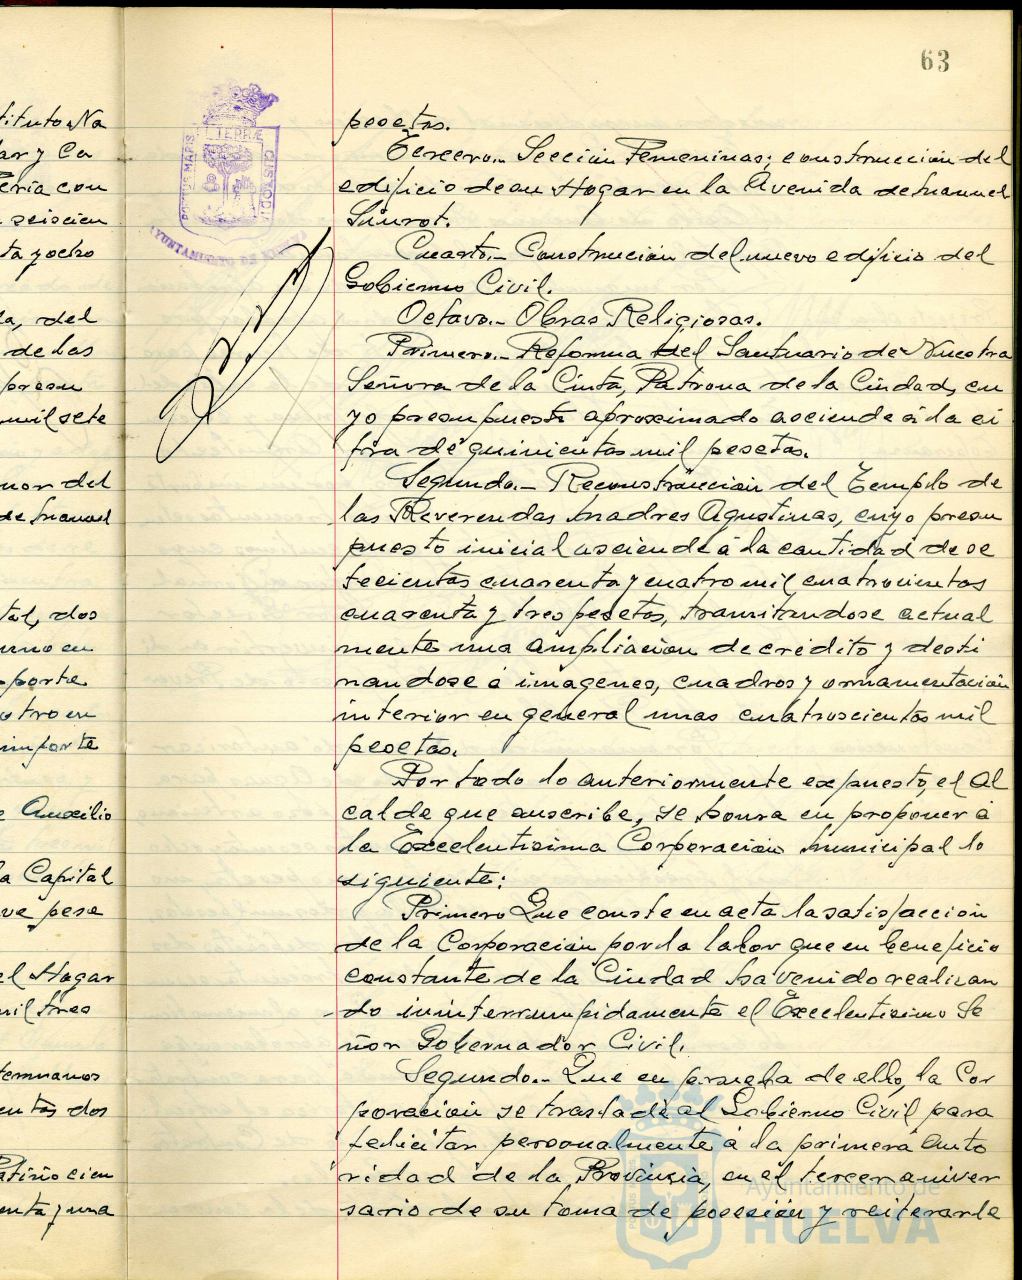 63
pesetas.
Tercero.- Sección Femenina; construcción del
edificio de un Hogar en la Avenida de Manuel
Siurot.
Cuarto.- Construcción del nuevo edificio del
Gobierno Civil.
Octavo.- Obras Religiosas.
Primero.- Reforma del Santuario de Nuestra
Señora de la Cinta, Patrona de la Ciudad, cu
yo presupuesto aproximado asciende á la ci
fra de quinientas mil pesetas.
Segundo.- Reconstrucción del Templo de
las Reverendas Madres Agustinas, cuyo presu
puesto inicial asciende á la cantidad de se
tecientas cuarenta y cuatro mil cuatrocientas
cuarenta y tres pesetas, tramitandose actual
mente una ampliación de crédito y desti
nandose á imágenes, cuadros y ornamentación
interior en general unas cuatroscientas mil
pesetas.
Por todo lo anteriormente expuesto, el Al
calde que suscribe, se honra en proponer á
la Excelentisima Corporación Municipal lo
siguiente:
Primero Que conste en acta la satisfacción
de la Corporación por la labor que en beneficio
constante de la Ciudad ha venido realizan
do ininterrumpidamente el Excelentisimo Se
ñor Gobernador Civil.
Segundo.- Que en prueba de ello, la Cor
poración se traslade al Gobierno Civil para
felicitar personalmente á la primera Auto
ridad de la Provincia, en el tercer aniver
sario de su toma de posesión y reiterarle
tituto Na
lar y Ca
teria con
seiscien
ta y ocho
la, del
de las
presu
mil sete
nor del
de Manuel
tal, dos
uno en
porta
otro en
importe
e Auxilio
la Capital
ve pese
el Hogar
mil tres
Hermanos
entas dos
Patiño cien
enta y una
PORTUS MARIS ET TERRÆ CUSTODIA
AYUNTAMIENTO DE HUELVA
Ayuntamiento de
HUELVA